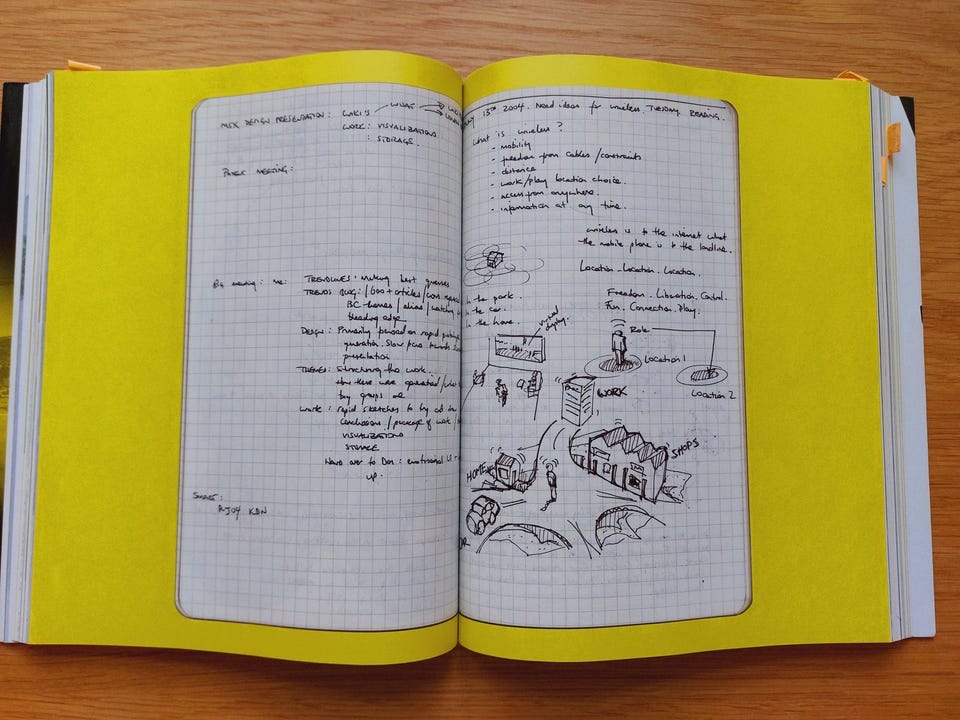 MSX DESIGN PRESENTATION : WIKI'S WHAT
WORK : VISUALIZATIONS
: STORAGE.
MEETING :
meeting : me : TRENDLINES : making best guesses
TRENDS / 600 + articles /
/ alias / watching
bleeding edge
DESIGN : Primarily focused on rapid
generation. Slow
presentation
THEMES : Structuring the work.
How these were operated /
by groups
WORK : rapid sketches to try out
conclusions / package of work /
VISUALIZATIONS
STORAGE
over to Don : emotional UI -
up.
15TH 2004. Need ideas for wireless TUESDAY READING.
What is wireless ?
- mobility
- freedom from cables / constraints
- distance
- work/play location choice.
- access from anywhere.
- information at any time.
wireless is to the internet what
the mobile phone is to the landline.
Location . Location . Location .
Freedom . Liberation . Control .
Fun . Connection . Play .
in the park.
in the car.
in the home.
visual
display.
Role
Location 1
Location 2
WORK
SHOPS
HOME